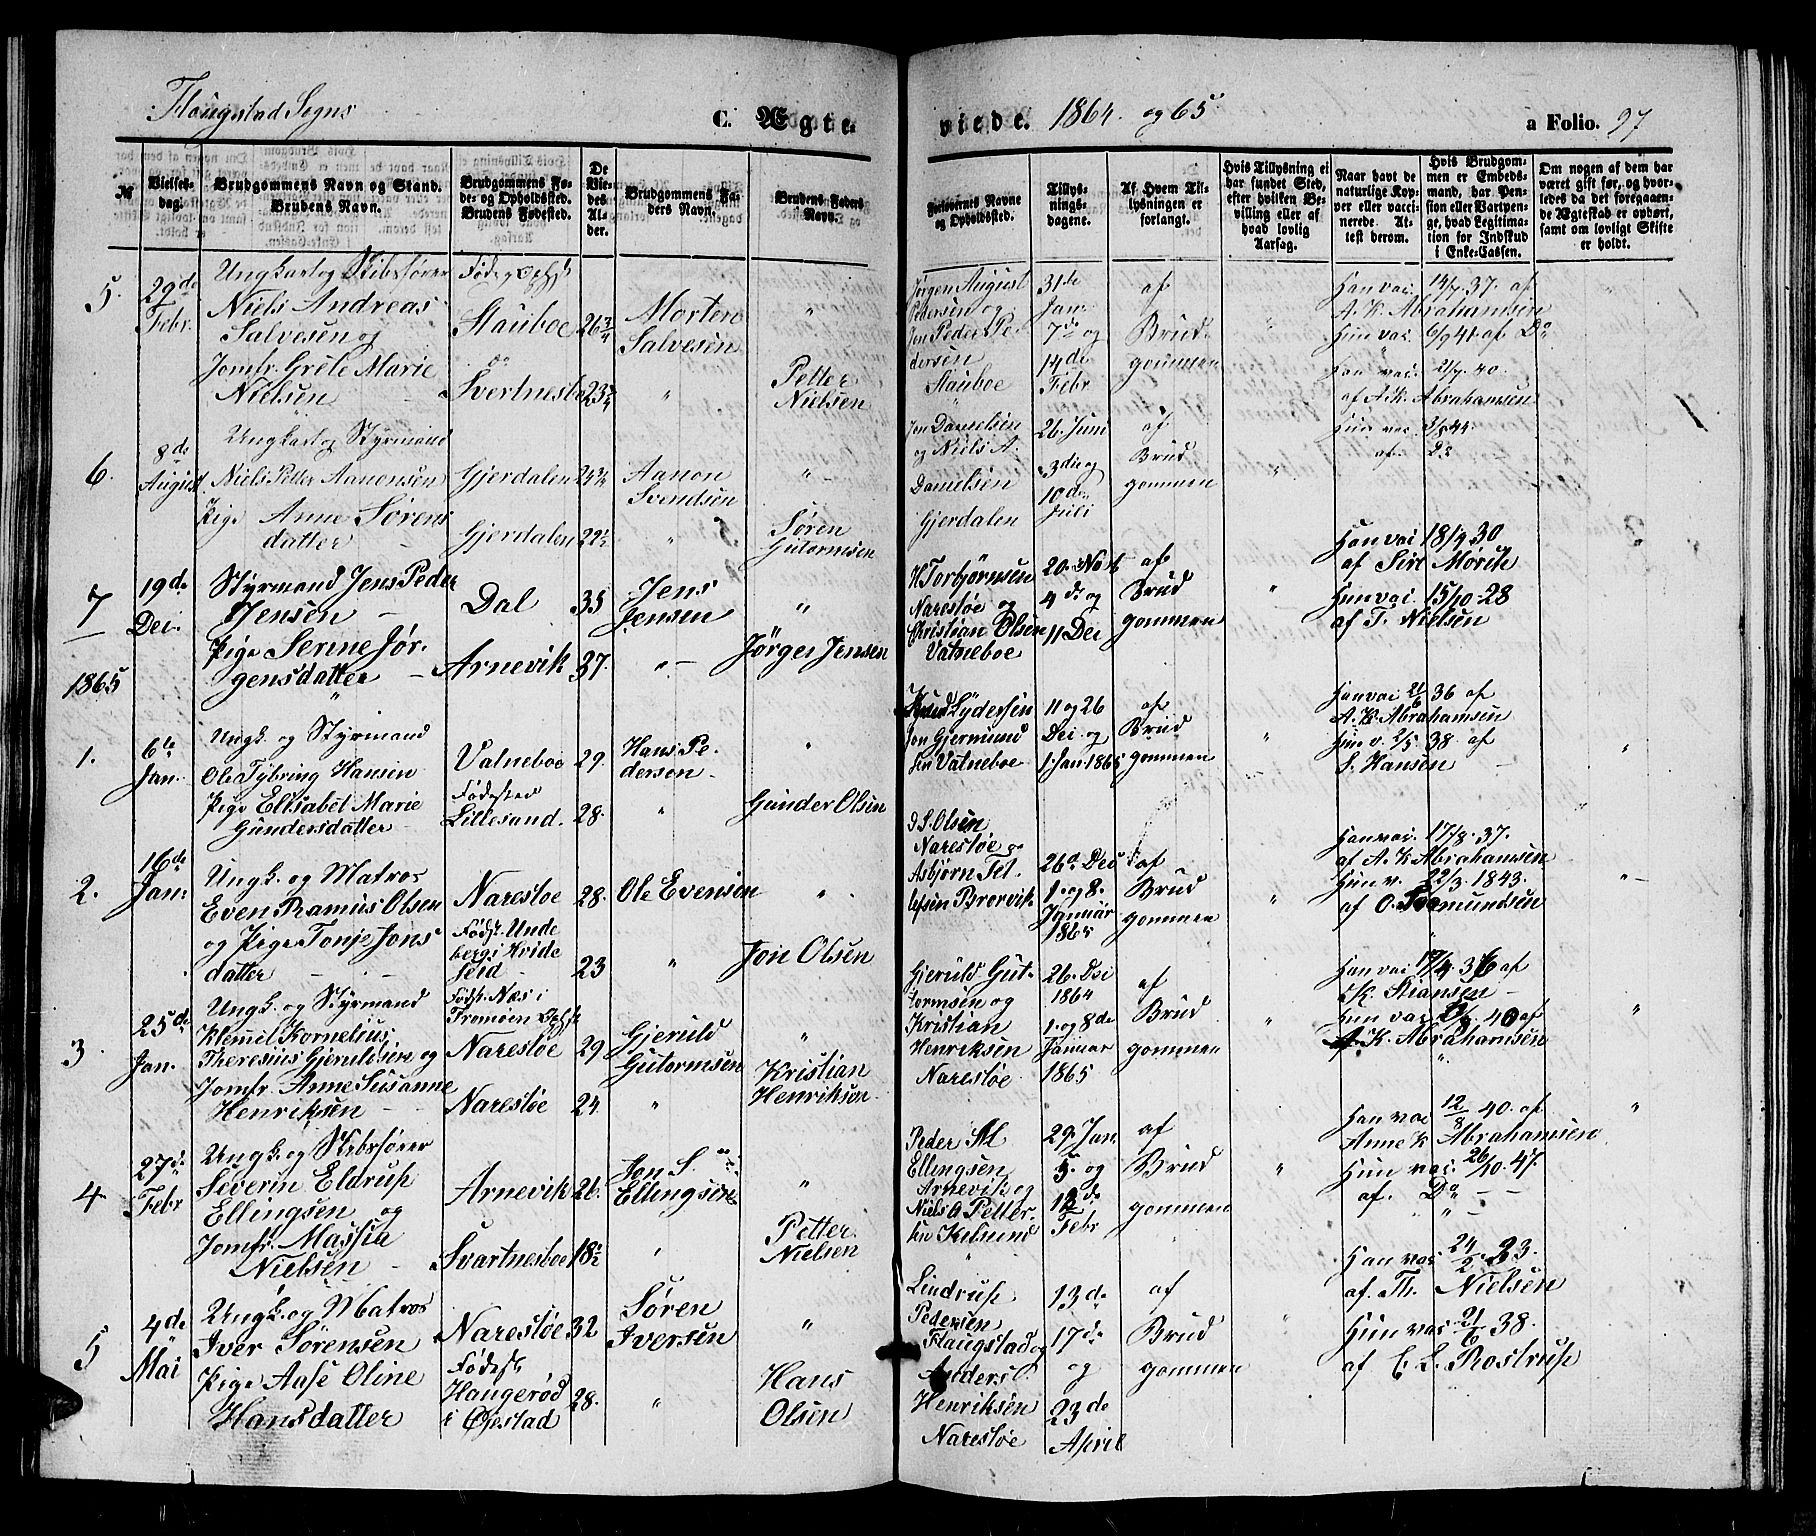 Flaugstad Sogns
C. Ægte-
viede.
1864. og 65
a Folio. 97
№
Vielses-
dag.
Brudgommens Navn og Stand.
Brudens Navn.
Brudgommens Fø-
de- og Opholdsted.
Brudens Fødested.
De
Vie-
des
Al-
der.
Brudgommens Fa-
ders Navn.
Brudens Faders
Navn.
Forlovernes Navne
og Opholdsted.
Tillys-
nings-
dagene.
Af Hvem Til-
lysningen er
forlangt.
Hvis Tillysning ei
har fundet Sted,
efter hvilken Be-
villing eller af
hvad lovlig
Aarsag.
Naar havt de
naturlige Kop-
per eller vacci-
nerede. At-
test derom.
Hvis Brudgom-
men er Embeds-
mand, har Pen-
sion eller Vartpen-
ge, hvad Legitima-
tion for Indskud
i Enke-Cassen.
Om nogen af dem har
været gift før, og hvor-
ledes da det foregaaen-
de Ægteskab er ophørt,
samt om lovligt Skifte
er holdt.
5.
29de
Febr.
Ungkarl og Skibsfører
Niels Andreas
Salvesen og
Jomfr. Grele Marie
Nielsen
Stauboe
do
Svertnesbo
26 3/4
23 3/4
Morten
Salvesen
"
"
Petter
Nielsen
Jørgen August
Pedersen og
Jen Peder Pe-
dersen
Stauboe
31de
Jan.
7de og
14de
Febr
af
Brud
gommen
Han vac. 14/7 37. af
A. K. Abrahamsen
Hun vac. 6/9 41. af Do
6.
8de
August
Ungkarl og Styrmand
Niels Petter Aanonsen
Pige Anne Sørens
datter
Gjerdalen
Gjerdalen
24 3/4
22 1/2
Aanon
Svendsen
"
"
Søren
Gutormsen
Jen Danielsen
og Niels A.
Danielsen
Gjerdalen
26. Juni
3die og
10de
Juli
af
Brud
gommen
"
Han vac. 21/7. 40.
af A. K. Abrahamsen
Hun vac. 3/8 44.
af Do
7
19de
Dec.
Styrmand Jens Peder
Jensen
Pige Serine Jør-
gensdatter
Dal
Arnevik
35
37.
Jens
Jensen
"
Jørges Jensen
H Torbjørnsen
Naresløe og
Christian Olsen
Vatneboe
20. Nov
4de og
11 Dec
af
Brud
gommen
"
Han vac 18/4 30
af Sire Mørch
Hun vac. 15/10-28
af T. Nielsen
1865
1.
6te
Jan.
Ungk. og Styrmand
Ole Tybring Hansen
Pige Ellisabet Marie
Gundersdatter
Vatneboe
Fødested
Lillesand.
29.
28.
Hans Pe-
dersen
"
Gunder Olsen
Knud Lydersen
Jon Gjermund
sen Vatneboe
11 og 26
Dec. og
1. Jan. 1865
af
Brud
gommen
"
Han vac 21/6 36 af
A. K. Abrahamsen
Hun v. 2/5 38. af
S. Hansen
2.
16de
Jan.
Ungk. og Matros
Even Ramus Olsen
og Pige Tonje Jons
datter
Naresløe
Fødst. Unde
berg i Hvide
seid
28.
23
Ole Evensen
"
Jon Olsen
Naresløe og
Asbjørn Tel-
lefsen Brorvik
26de Dec
1. og 8.
Januar
1865
af
Brud
gommen
"
Han vac. 17/8. 37.
af A. K. Abrahamsen
Hun v. 22/3. 1843.
3.
25de
Jan.
Ungk. og Styrmand
Klemet Kornelius
Theresius Gjeruldsen og
Jomfr. Anne Susanne
Henriksen
Fødst. Næs i
Naresløe
Naresløe
29.
24.
Gjeruld
Gutormsen
"
Kristian
Henriksen
Gjeruld Gut-
tormsen og
Kristian
Henriksen
Naresløe
26. Dec
1864
1. og 8de
Januar
1865
af
Brud
gommen
"
K. Stiansen
A. K. Abrahamsen
4
27de
Febr
Ungk. og Skibsfører
Severin Eldrup
Ellingsen og
Jomfr. Massia
Nielsen
Arnevik
Svartnesboe
26.
18 1/2
Jon S.
Ellingsen
"
Petter
Nielsen
Peder M
Ellingsen
Arnevik og
29. Jan.
5. og
12de
Febr
af
Brud
gommen
"
Han vac 12/8 40. af
Anne K Abrahamsen
Hun vac. 26/10. 47.
af. Do
5
4de
Mai
Ungk. og Matros
Iver Sørensen
Pige Aase Oline
Hansdatter
Naresløe
Fødest
Haugerød
i Øiestad
32
28.
Søren
Iversen
"
Hans
Olsen
Lindrup
Pedersen
Flaugstad og
Anders
Henriksen
Naresløe
13de
17de
og
23de
April
af
Brud
gommen
Han vac. 24/2 23.
af. Th. Nielsen
Hun vac. 21/6 38.
af C. L. Rostrup